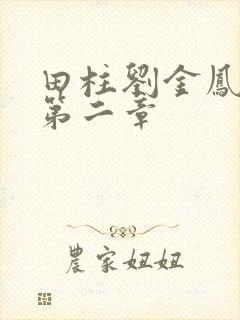 田柱劉金鳳
第二章
農家妞妞